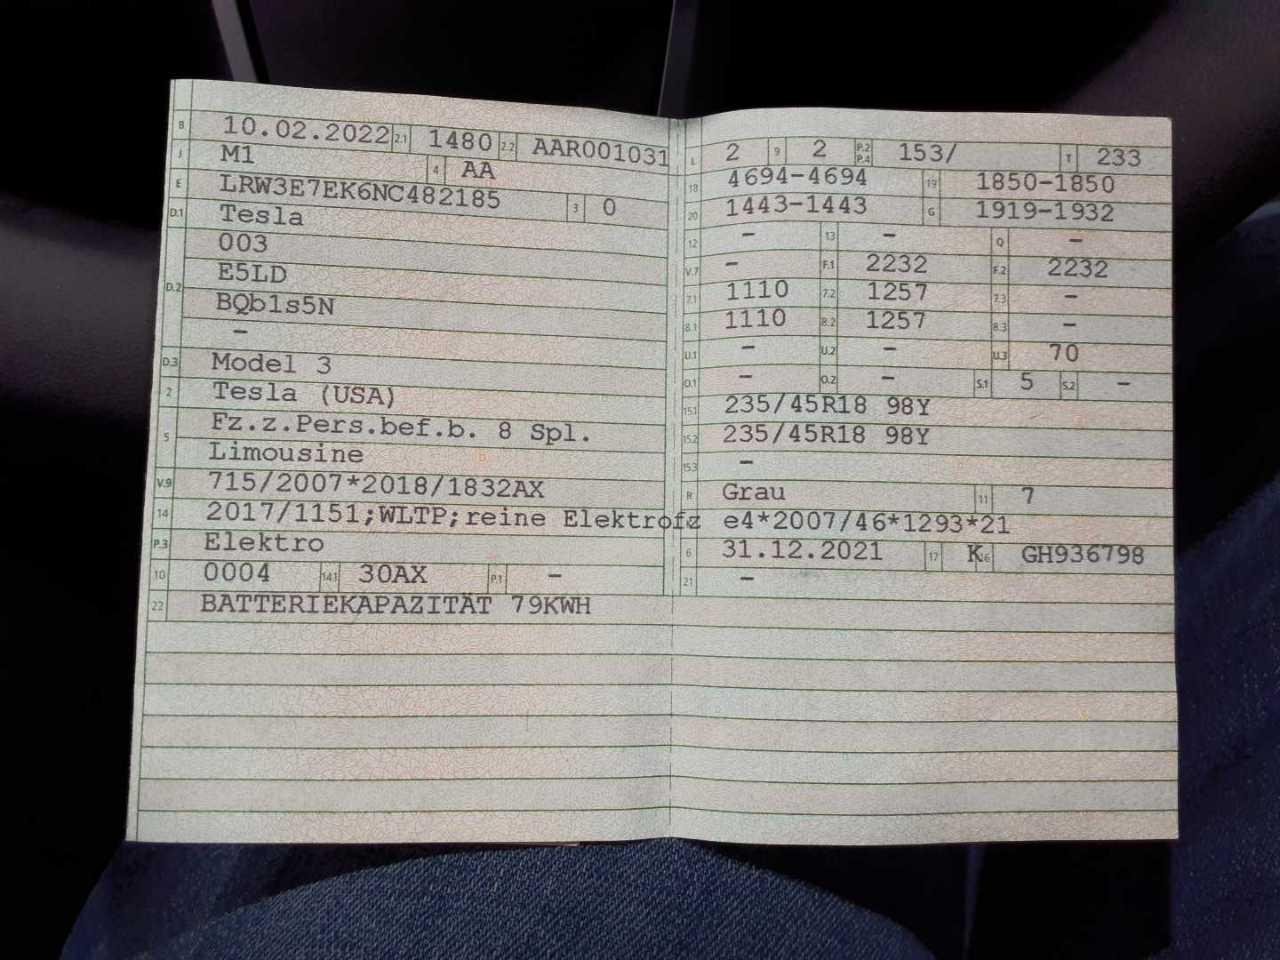 B 10.02.2022 2.1 1480 2.2 AAR001031
J M1 4 AA
E LRW3E7EK6NC482185 3 0
D.1 Tesla
003
D.2 E5LD
BQb1s5N
–
D.3 Model 3
2 Tesla (USA)
5 Fz.z.Pers.bef.b. 8 Spl.
Limousine
V.9 715/2007*2018/1832AX
14 2017/1151;WLTP;reine Elektrofz
P.3 Elektro
10 0004 14.1 30AX P.1 –
22 BATTERIEKAPAZITÄT 79KWH
L 2 9 2 P.2 P.4 153/ T 233
18 4694-4694 19 1850-1850
20 1443-1443 G 1919-1932
12 – 13 – Q –
V.7 – F.1 2232 F.2 2232
7.1 1110 7.2 1257 7.3 –
8.1 1110 8.2 1257 8.3 –
U.1 – U.2 – U.3 70
O.1 – O.2 – S.1 5 S.2 –
15.1 235/45R18 98Y
15.2 235/45R18 98Y
15.3 –
R Grau 11 7
e4*2007/46*1293*21
6 31.12.2021 17 K 16 GH936798
21 –